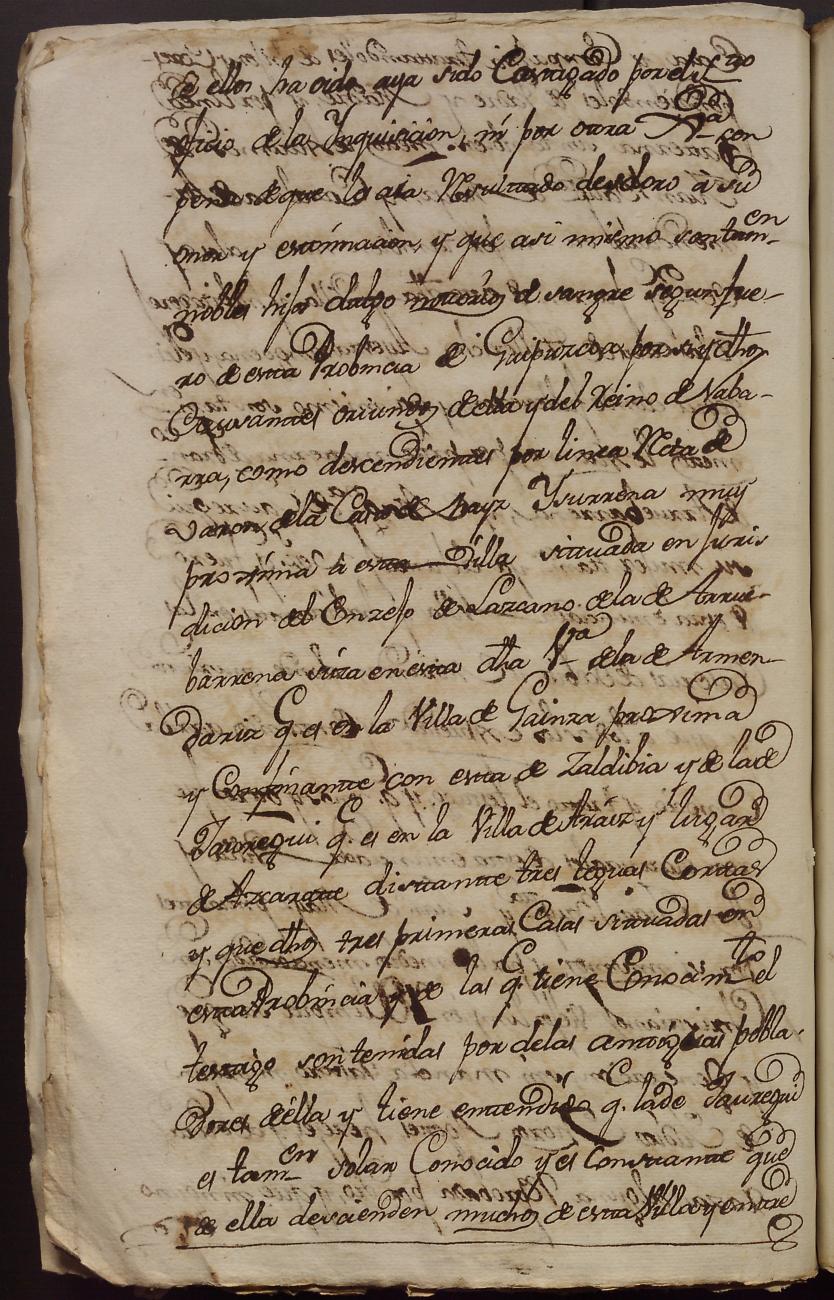 de ellos ha oido aya sido Castigado por el sto
oficio de la Ynquisicion, ni por otra Xª con
pena de que les aia Resultado desdoro a su
onor y estimacion, y que asi mismo son tamen
nobles hijos dalgo notorios de sangre segun fue-
ro de esta Probincia de Guipuzcoa por sus dhos
Causantes oriundos de ella y del Reino de Naba-
rra, como descendientes por linea Reta de
varon, de la Casa de Ysurrena muy
proxima a esta Villa situada en Juris
dicion del Conzejo de Lazcano. de la de Arrui-
barrena sita en esta dha Vª de la de Armen-
dariz q. es en la Villa de Gainza, proxima
y Confinante con esta de Zaldibia y de la de
Jauregui q. es en la Villa de Araiz y lugar
de Azcarque distante tres leguas Cortas
y, que dhos tres primeras Casas situadas en
esta Probincia y de las q. tiene Conocimto el
testigo son tenidas por de las antiguas pobla-
doras de ella y tiene entendido q. la de Jauregui
es tamen solar Conocido y es Constante que
de ella descienden muchos de esta Villa y entre